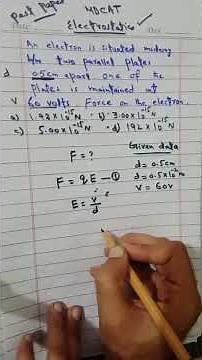 Past paper MDCAT
Electrostatics
An electron is situated midway
b/w two parallel plates
d 0.5cm apart one of the
plates is maintained at
V 60 volts Force on the electron.
a) 1.92×10⁻¹⁵N b) 3.00×10⁻¹⁵N
c) 5.00×10⁻¹⁵N d) 192×10⁻¹⁵N
F = ? Given data
d = 0.5cm
F = qE —① d = 0.5×10⁻²m
E = V/d V = 60V